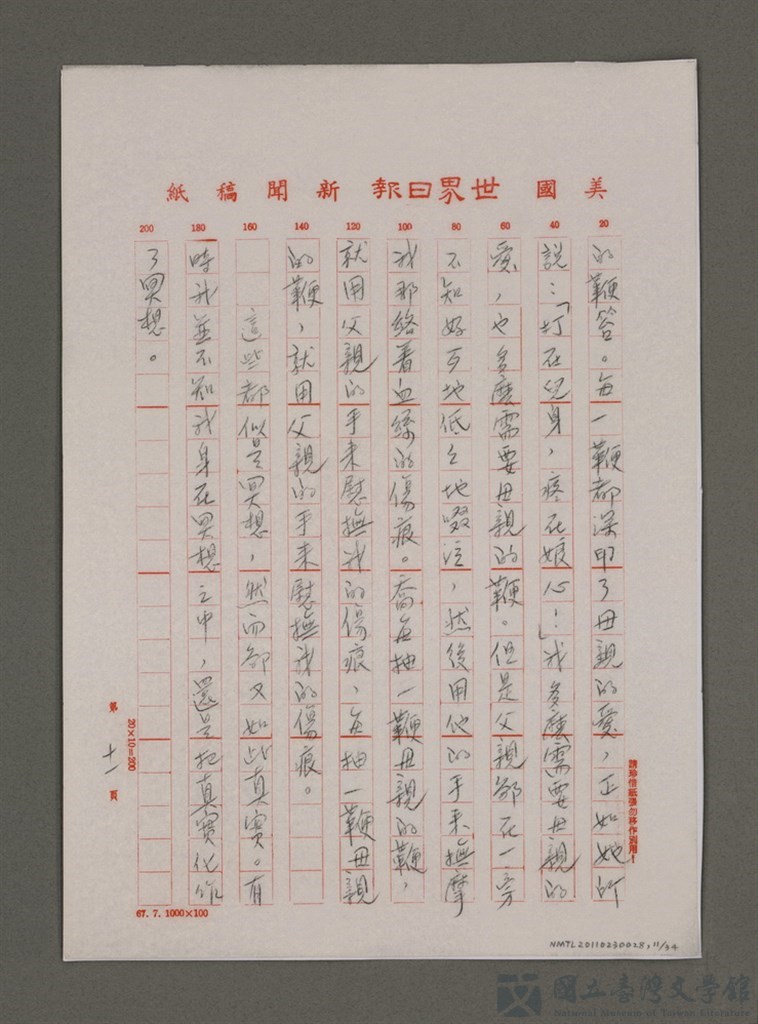 美國世界日報新聞稿紙
20
40
60
80
100
120
140
160
180
200
的鞭笞。每一鞭都深印了母親的愛，正如她所
說：「打在兒身，疼在娘心！」我多麼需要母親的
愛，也多麼需要母親的鞭。但是父親卻在一旁
不知好歹地低低地啜泣，然後用他的手來撫摩
我那絡着血絲的傷痕。喬每抽一鞭母親的鞭，
就用父親的手來慰撫我的傷痕，每抽一鞭母親
的鞭，就用父親的手來慰撫我的傷痕。
這些都似是冥想，然而卻又如此真實。有
時我並不知我身在冥想之中，還是把真實化作
了冥想。
請珍惜紙張勿移作別用！
20×10=200
第十一頁
67.7.1000×100
NMTL20110230028, 11/34
國立臺灣文學館
National Museum of Taiwan Literature